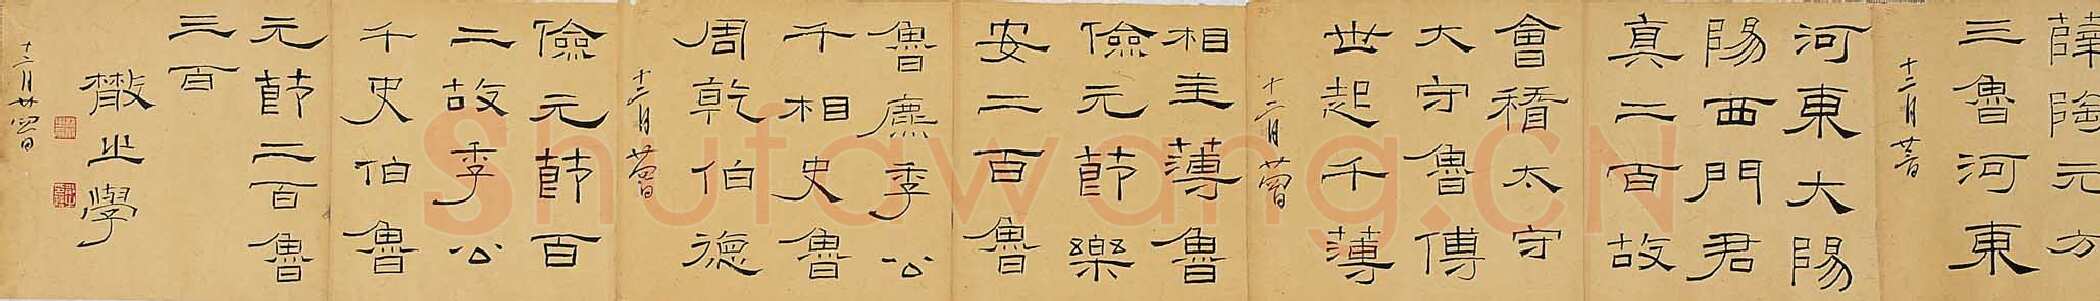 薛陶元方
三魯河東
十二月廿日
河東大陽
陽西門君
真二百故
會稽太守
大守魯傅
世起千薄
十二月廿四日
相主薄魯
儉元節樂
安二百魯
魯麃季公
千相史魯
周乾伯德
十二月廿四日
儉元節百
二故季公
千史伯魯
元節二百魯
三百
之學
十二月廿四日
Shufawang.CN